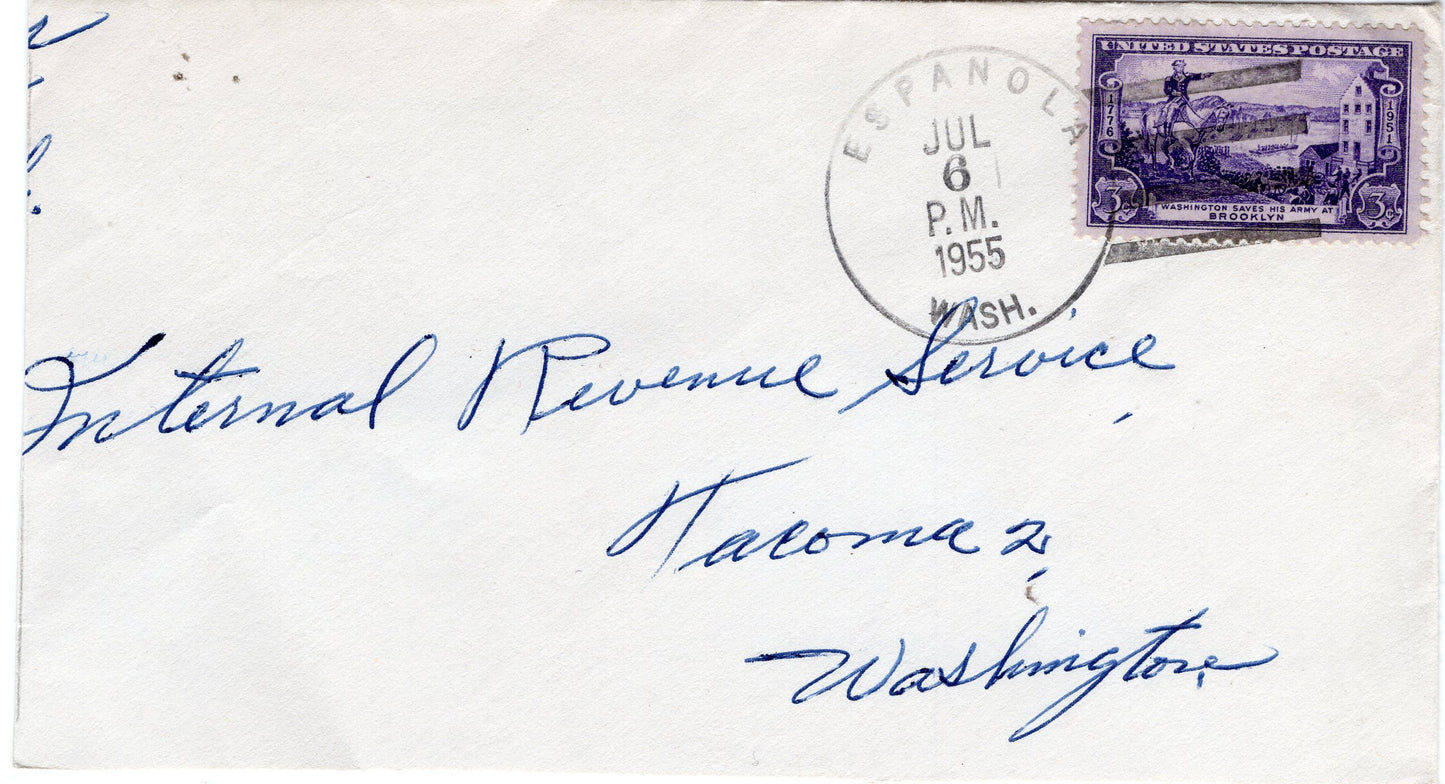 UNITED STATES POSTAGE
1776
1951
3¢
3¢
WASHINGTON SAVES HIS ARMY AT
BROOKLYN
ESPANOLA
JUL
6
P.M.
1955
WASH.
Internal Revenue Service,
Tacoma 2,
Washington.